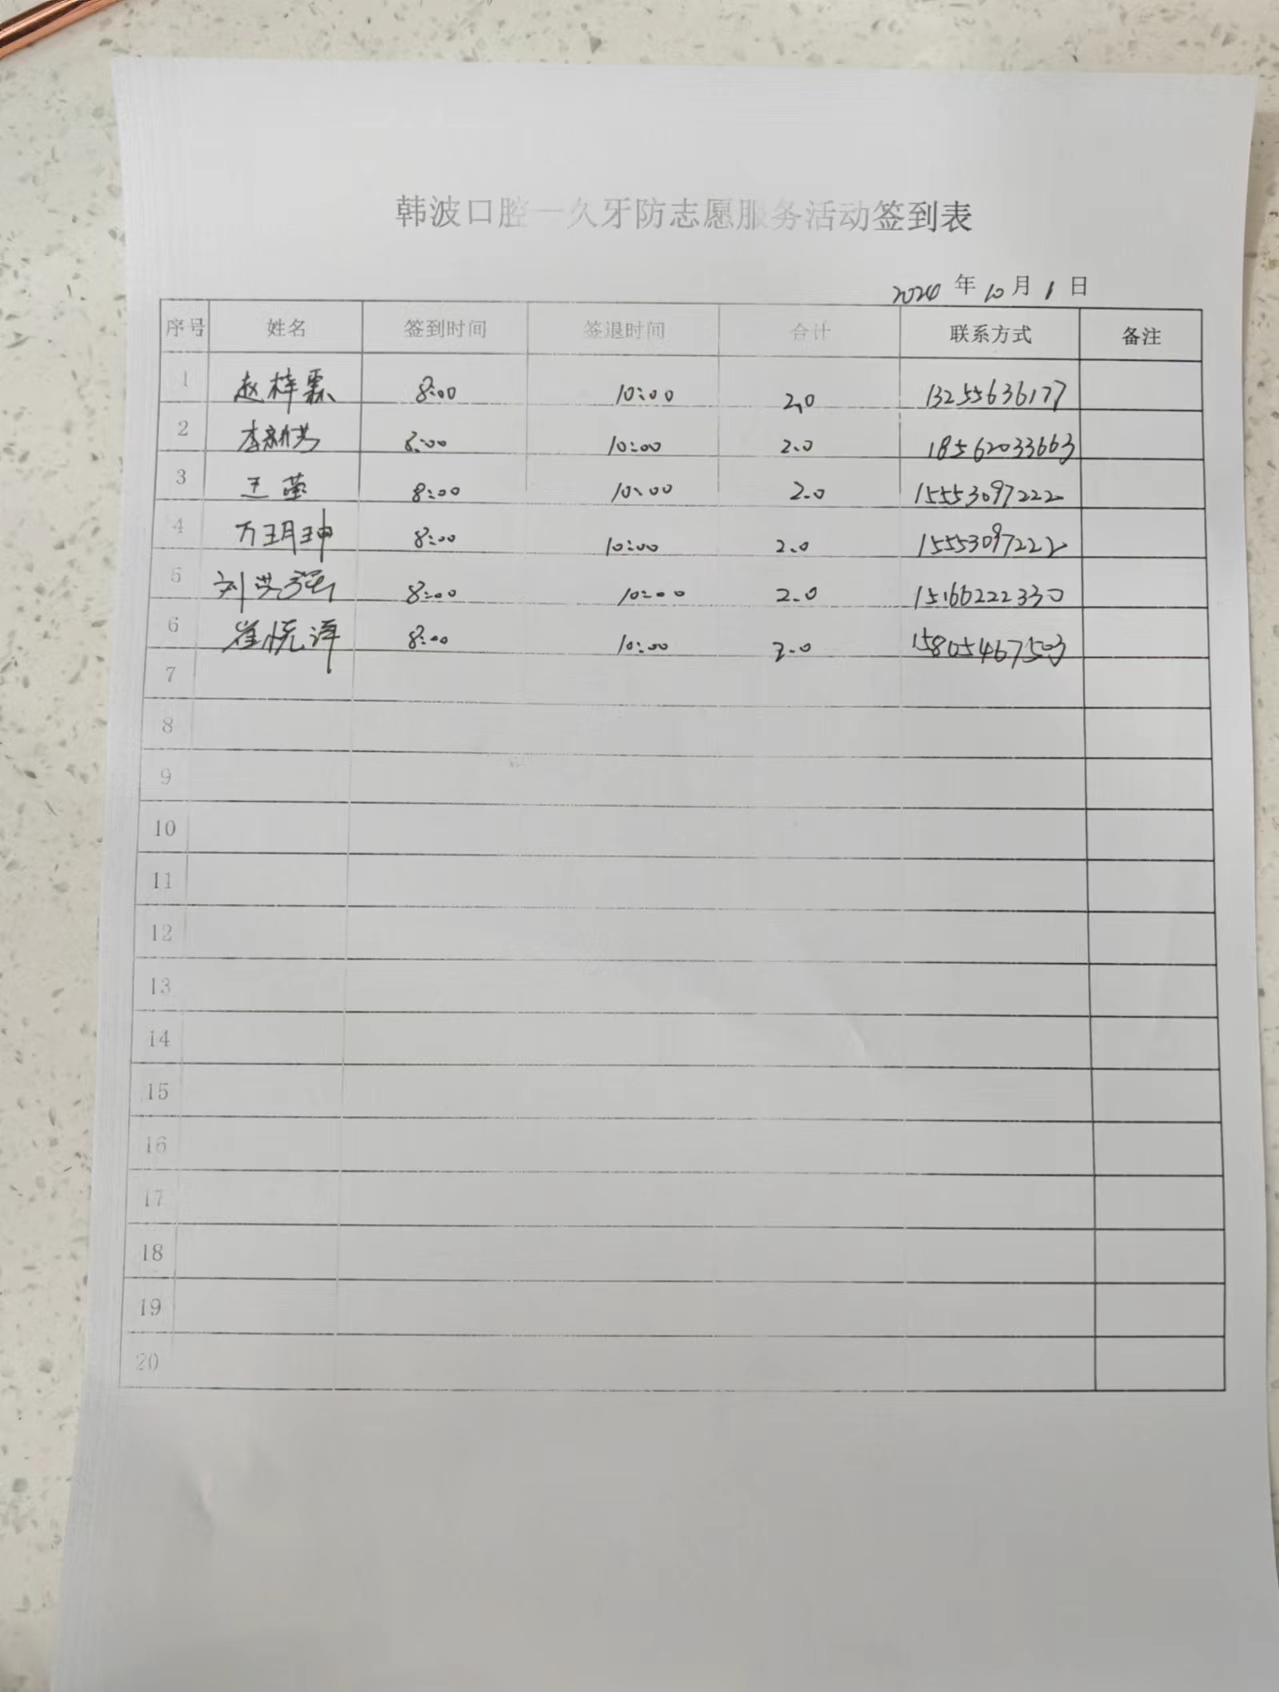 韩波口腔一久牙防志愿服务活动签到表
2024 年 10 月 1 日
序号 姓名 签到时间 签退时间 合计 联系方式 备注
1 赵梓霖 8:00 10:00 2.0 13255636177
2 8:00 10:00 2.0 18562033663
3 王蕾 8:00 10:00 2.0 15553097222
4 万玥珅 8:00 10:00 2.0 15553097222
5 刘洪强 8:00 10:00 2.0 15166222330
6 崔悦泽 8:00 10:00 2.0 15805467503
7
8
9
10
11
12
13
14
15
16
17
18
19
20